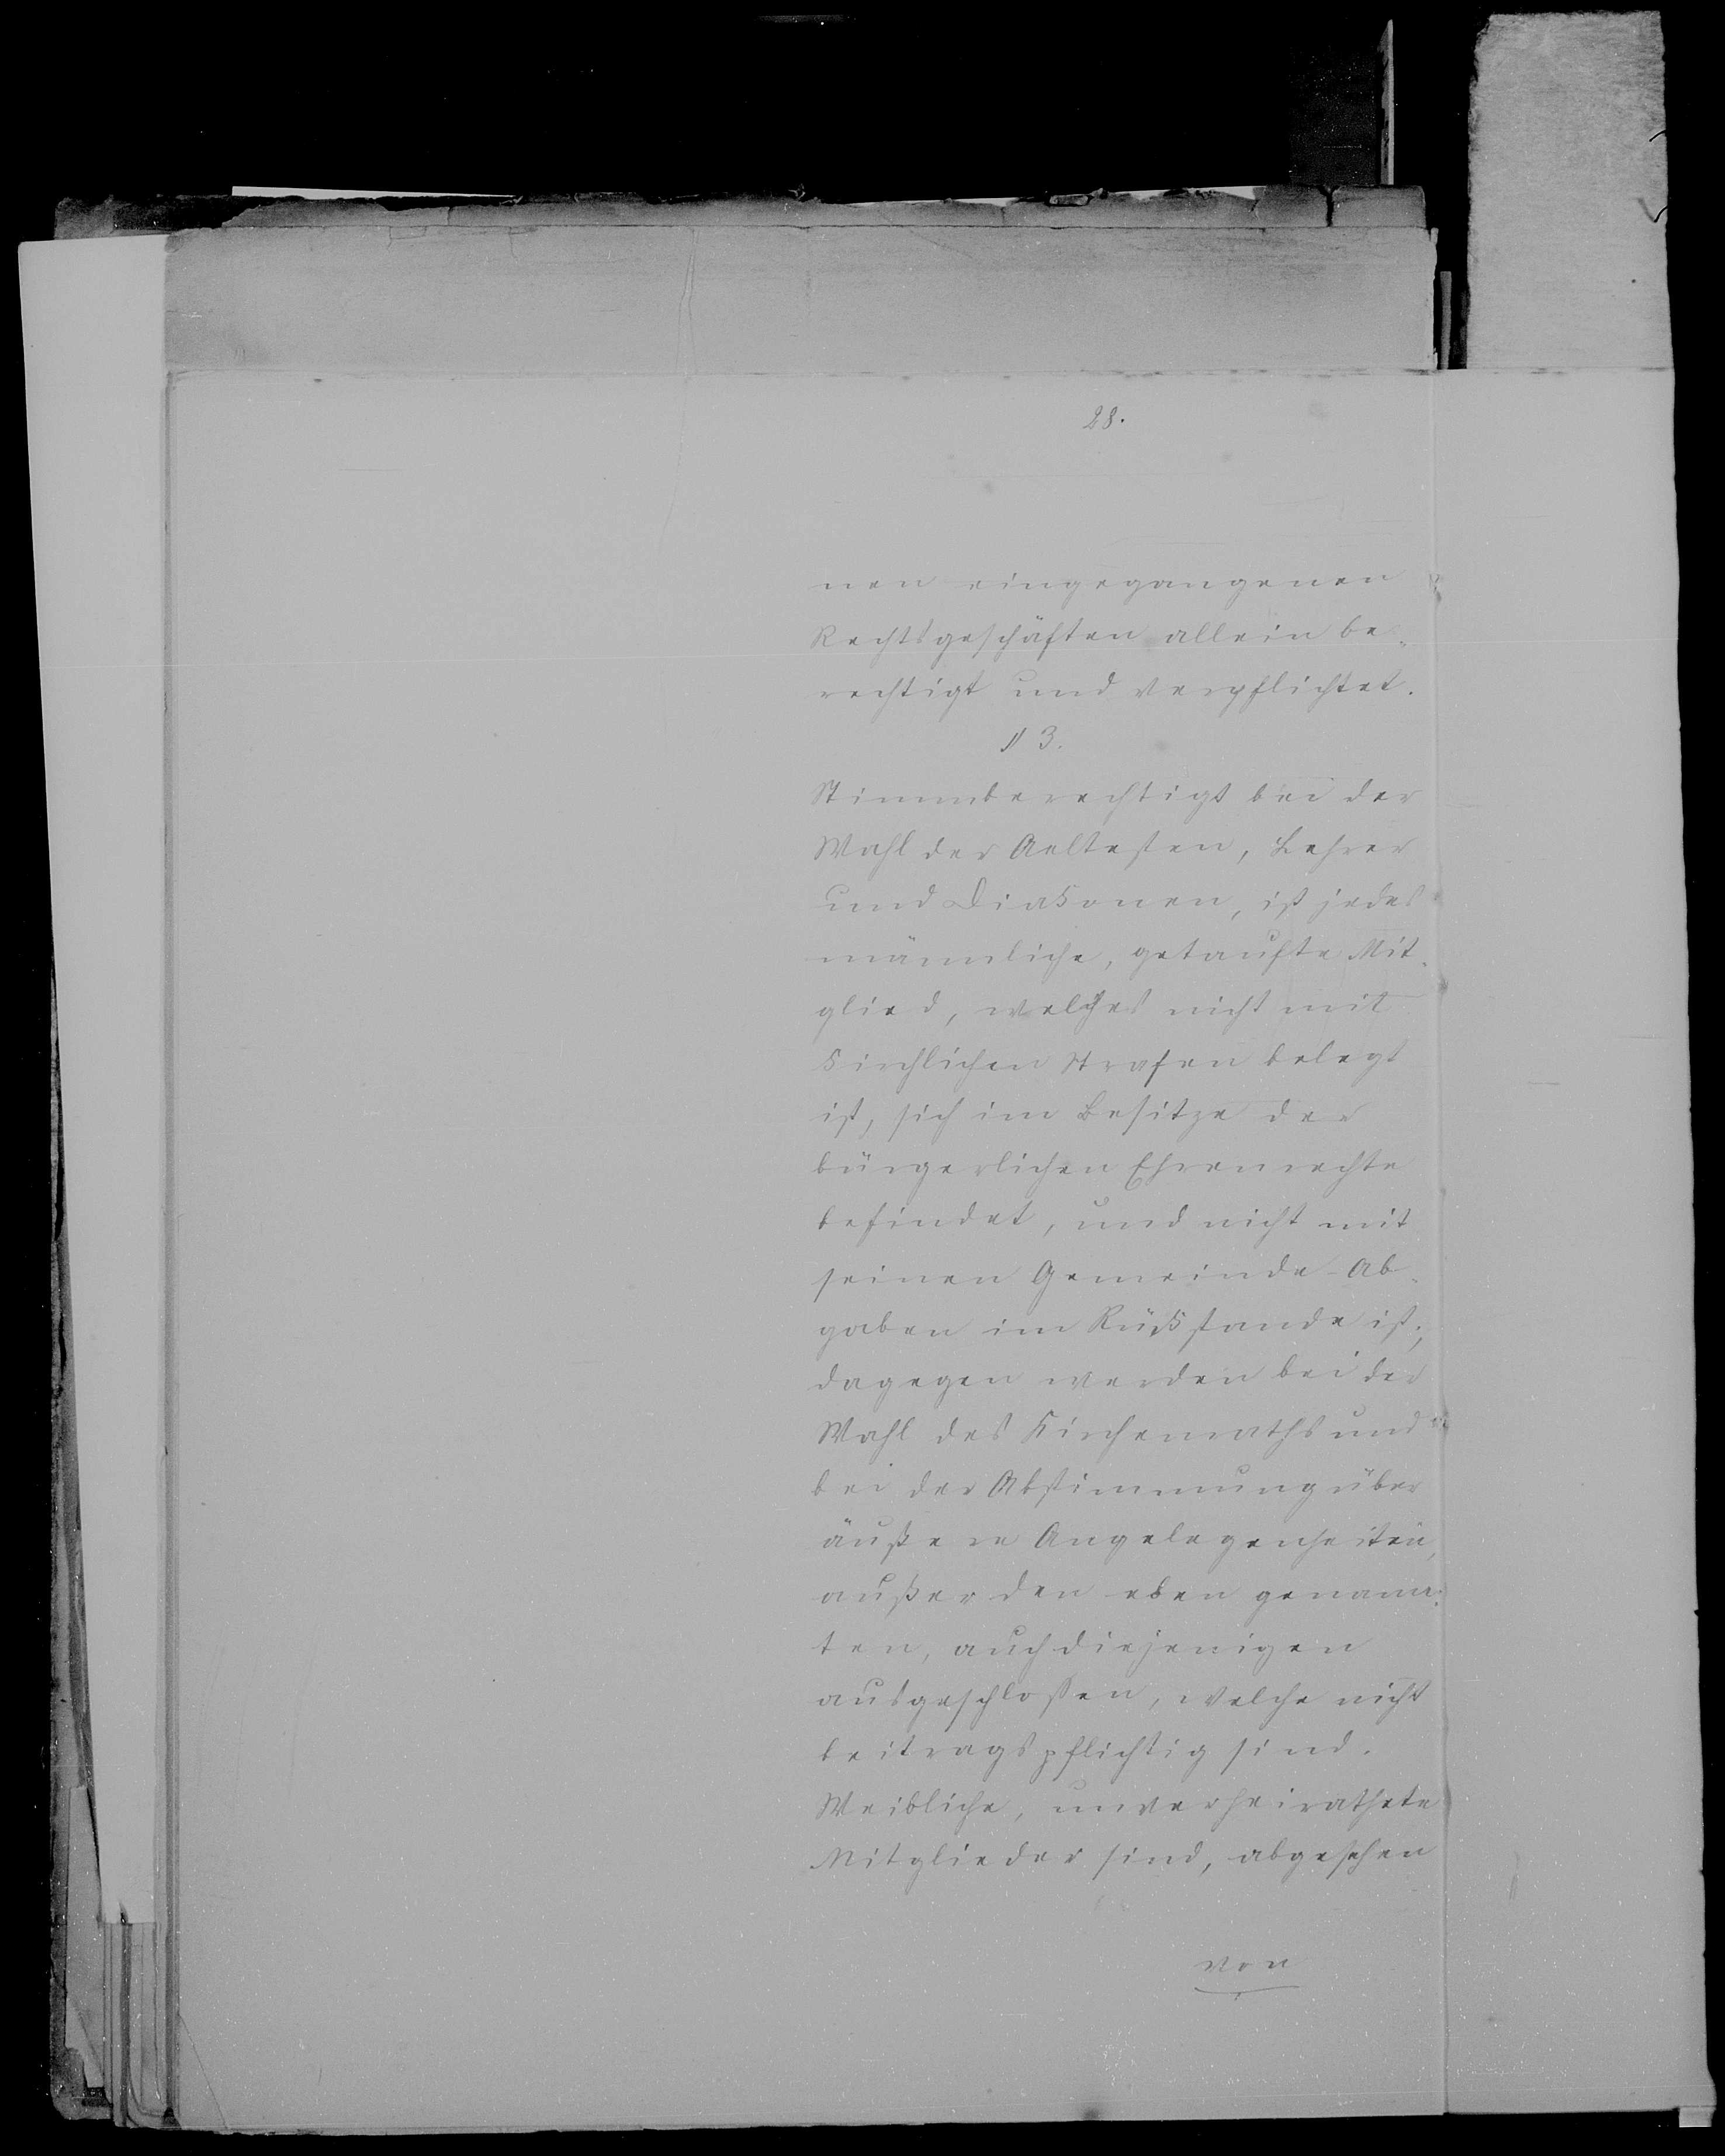 28.
nen eingegangenen
Rechtsgeschäften allein be-
rechtigt und verpflichtet.
§ 3.
Stimmberechtigt bei der
Wahl der Aeltesten, Lehrer
und Diakonen, ist jedes
männliche, getaufte Mit-
glied, welches nicht mit
kirchlichen Strafen belegt
ist, sich im Besitze der
bürgerlichen Ehrenrechte
befindet, und nicht mit
seinen Gemeinde-Ab-
gaben im Rückstande ist;
dagegen werden bei der
Wahl des Kirchenraths und
bei der Abstimmung über
äußere Angelegenheiten,
außer den eben genann-
ten, auch diejenigen
ausgeschlossen, welche nicht
beitragspflichtig sind.
Weibliche, unverheirathete
Mitglieder sind, abgesehen
von